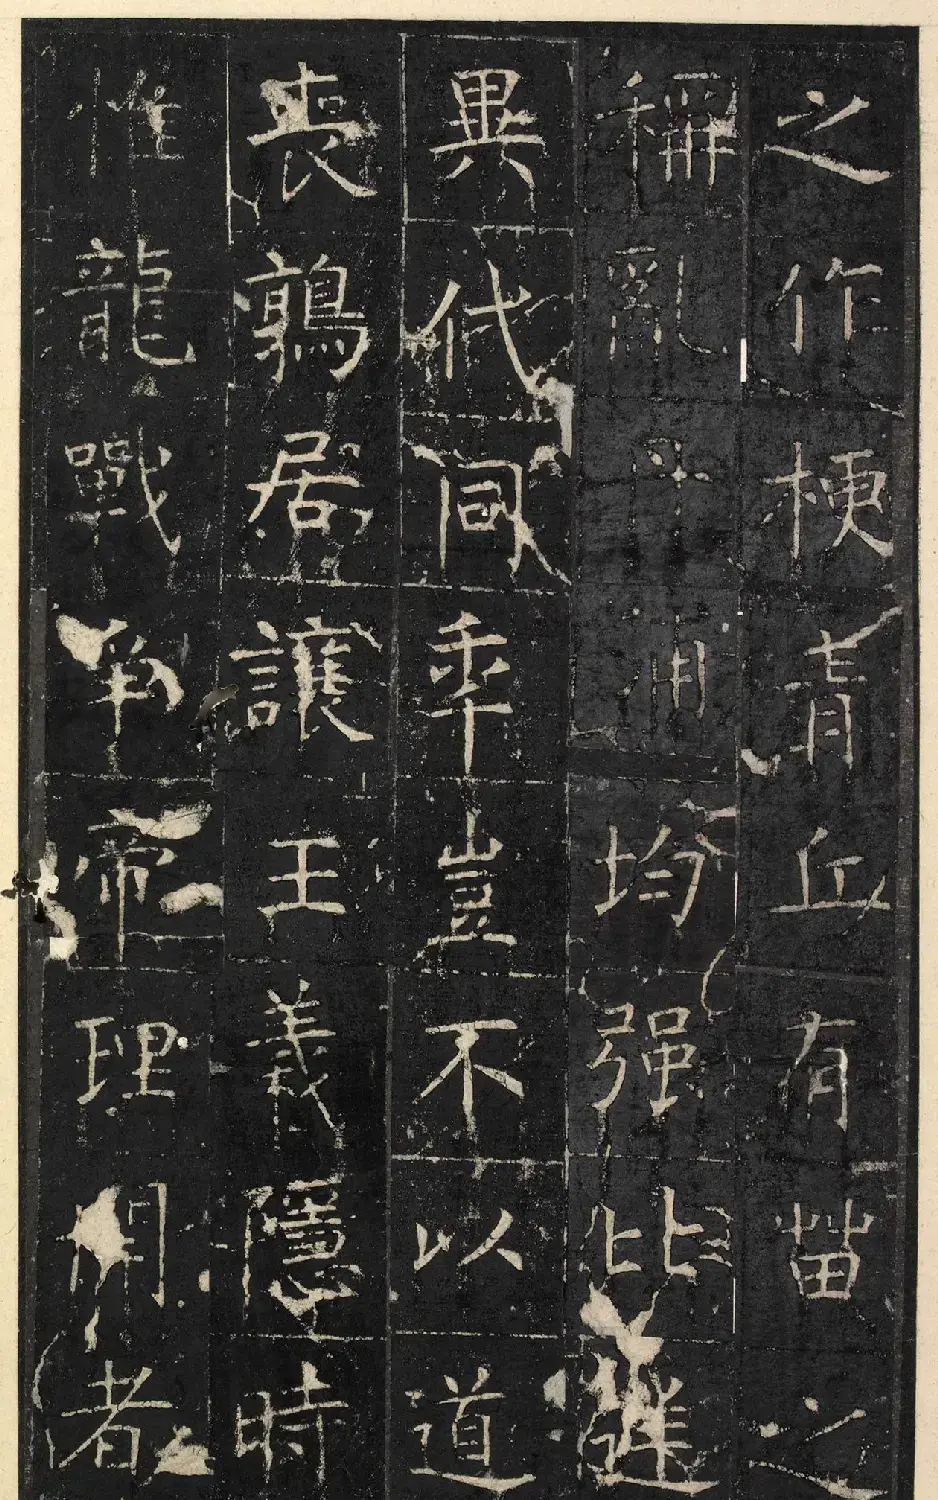 之作梗青丘有苗之
稱亂丹浦均强比
異代同秊豈不以道
喪鶉居讓王義隱時
惟龍戰爭帝理開者